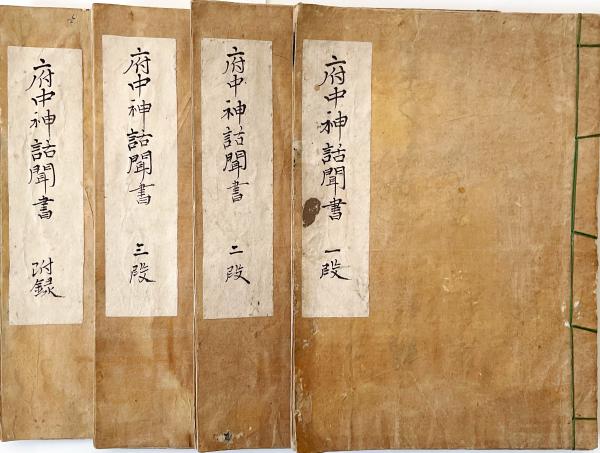 府中神話聞書 一段
府中神話聞書 二段
府中神話聞書 三段
府中神話聞書 附録